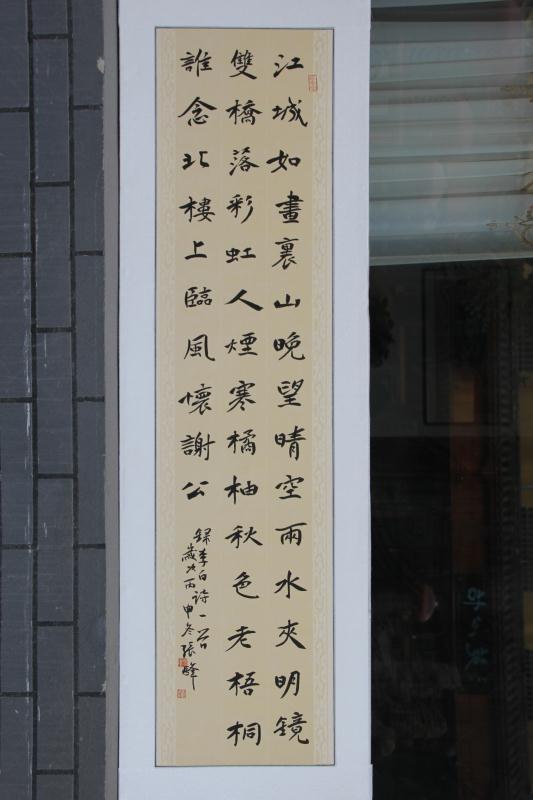 江城如畫裏山晚望晴空兩水夾明鏡
雙橋落彩虹人煙寒橘柚秋色老梧桐
誰念北樓上臨風懷謝公
録李白詩一首
歲次丙申冬張峰